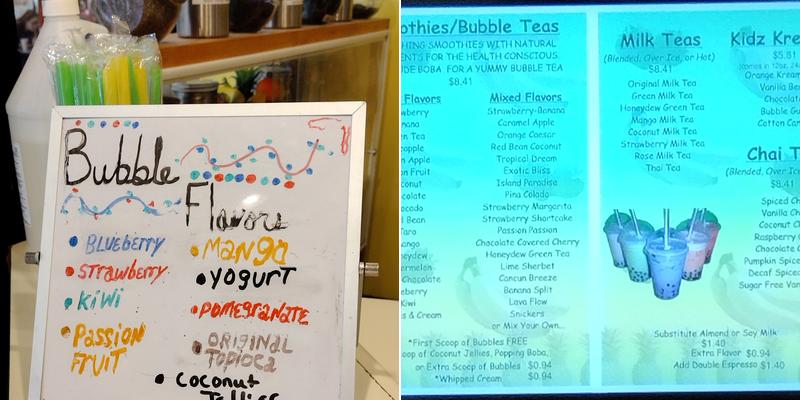 Bubble
Flavors
BLUEBERRY
STRAWBERRY
KIWI
PASSION
FRUIT
MANGO
YOGURT
POMEGRANATE
ORIGINAL
TOPIOCA
COCONUT
othies/Bubble Teas
HING SMOOTHIES WITH NATURAL
ENTS FOR THE HEALTH CONSCIOUS.
UDE BOBA FOR A YUMMY BUBBLE TEA
$8.41
Flavors
wberry
anana
en Tea
eapple
n Apple
on Fruit
conut
ocolate
ocado
d Bean
Taro
ango
neydew
ermelon
Chocolate
eberry
Kiwi
s & Cream
Mixed Flavors
Strawberry-Banana
Caramel Apple
Orange Caesar
Red Bean Coconut
Tropical Dream
Exotic Bliss
Island Paradise
Pina Colada
Strawberry Margarita
Strawberry Shortcake
Passion Passion
Chocolate Covered Cherry
Honeydew Green Tea
Lime Sherbet
Cancun Breeze
Banana Split
Lava Flow
Snickers
or Mix Your Own...
*First Scoop of Bubbles FREE
coop of Coconut Jellies, Popping Boba,
or Extra Scoop of Bubbles $0.94
*Whipped Cream $0.94
Milk Teas
(Blended, Over Ice, or Hot)
$8.41
Original Milk Tea
Green Milk Tea
Honeydew Green Tea
Mango Milk Tea
Coconut Milk Tea
Strawberry Milk Tea
Rose Milk Tea
Thai Tea
Kidz Kre
$5.81
(comes in 12oz, 24
Orange Kream
Vanilla Ban
Chocolat
Bubble Gu
Cotton Can
Chai T
(Blended, Over Ice
$8.41
Spiced Ch
Vanilla Ch
Coconut C
Raspberry
Chocolate C
Pumpkin Spice
Decaf Spiced
Sugar Free Van
Substitute Almond or Soy Milk
$1.40
Extra Flavor $0.94
Add Double Espresso $1.40